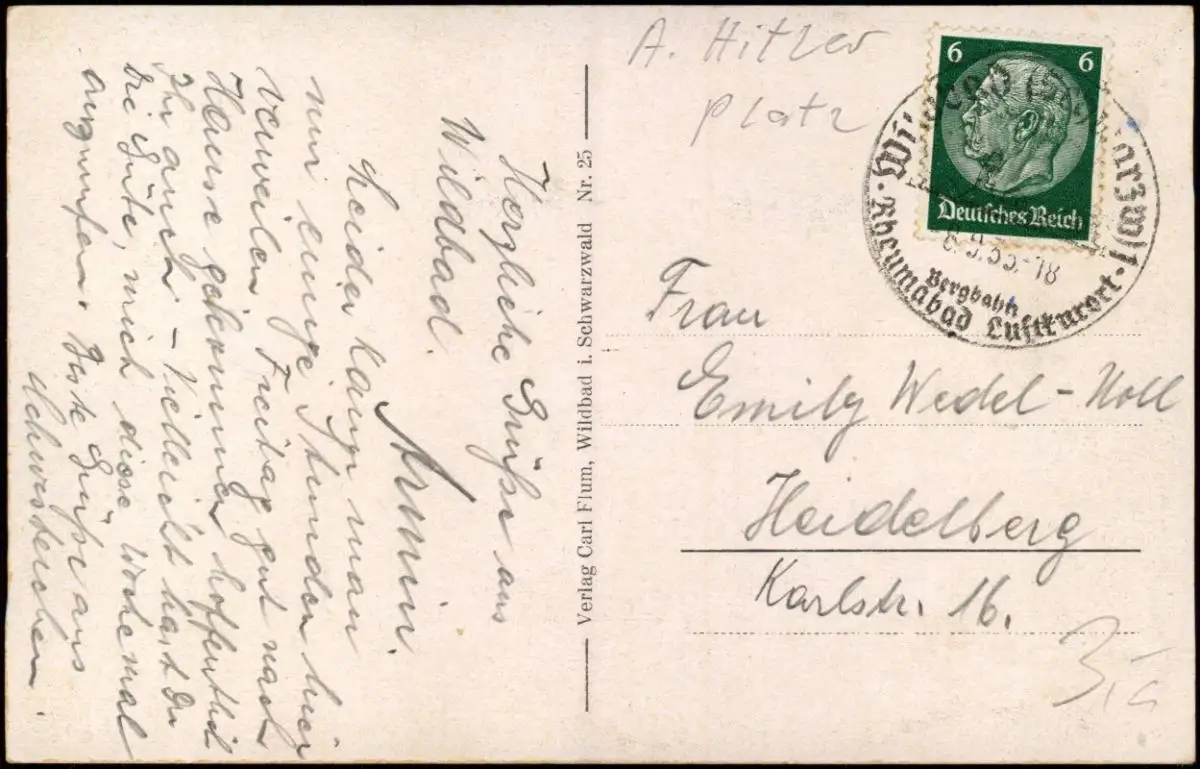 Herzliche Grüße aus
Wildbad.
Armin.
Leider kann man
nur einige Stunden hier
verweilen. Freitag gut nach
Hause gekommen, hoffentlich
Ihr auch – Vielleicht hast Du
die Güte, mich diese Woche mal
anzurufen. Beste Grüße aus
Verlag Carl Flum, Wildbad i. Schwarzwald Nr. 25
A. Hitler
platz
6 6
Deutsches Reich
Wildbad (Schwarzw)
-18
Bergbahn
Rheumabad Luftkurort
Frau
Emily Wedel-Noll
Heidelberg
Karlstr. 16.